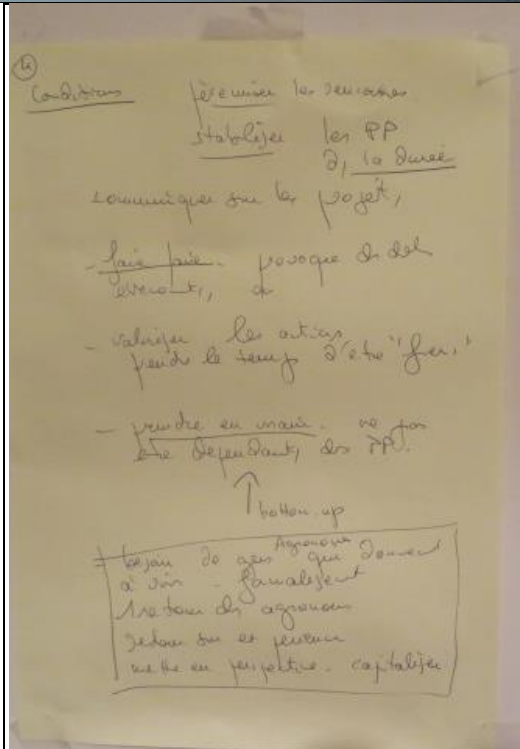 4
Conditions pérenniser les rencontres
stabiliser les PP
ds la durée
communiquer sur les projets,
- faire faire. provoque des
événements, 
- valoriser les actions
prendre le temps d'être "fiers"
- prendre en main. ne pas
être dépendants des PP.
bottom-up
Agronome
= besoin de gens qui donnent
à voir - formalisent
retour des agronomes
retour sur expérience
mettre en perspective. capitaliser